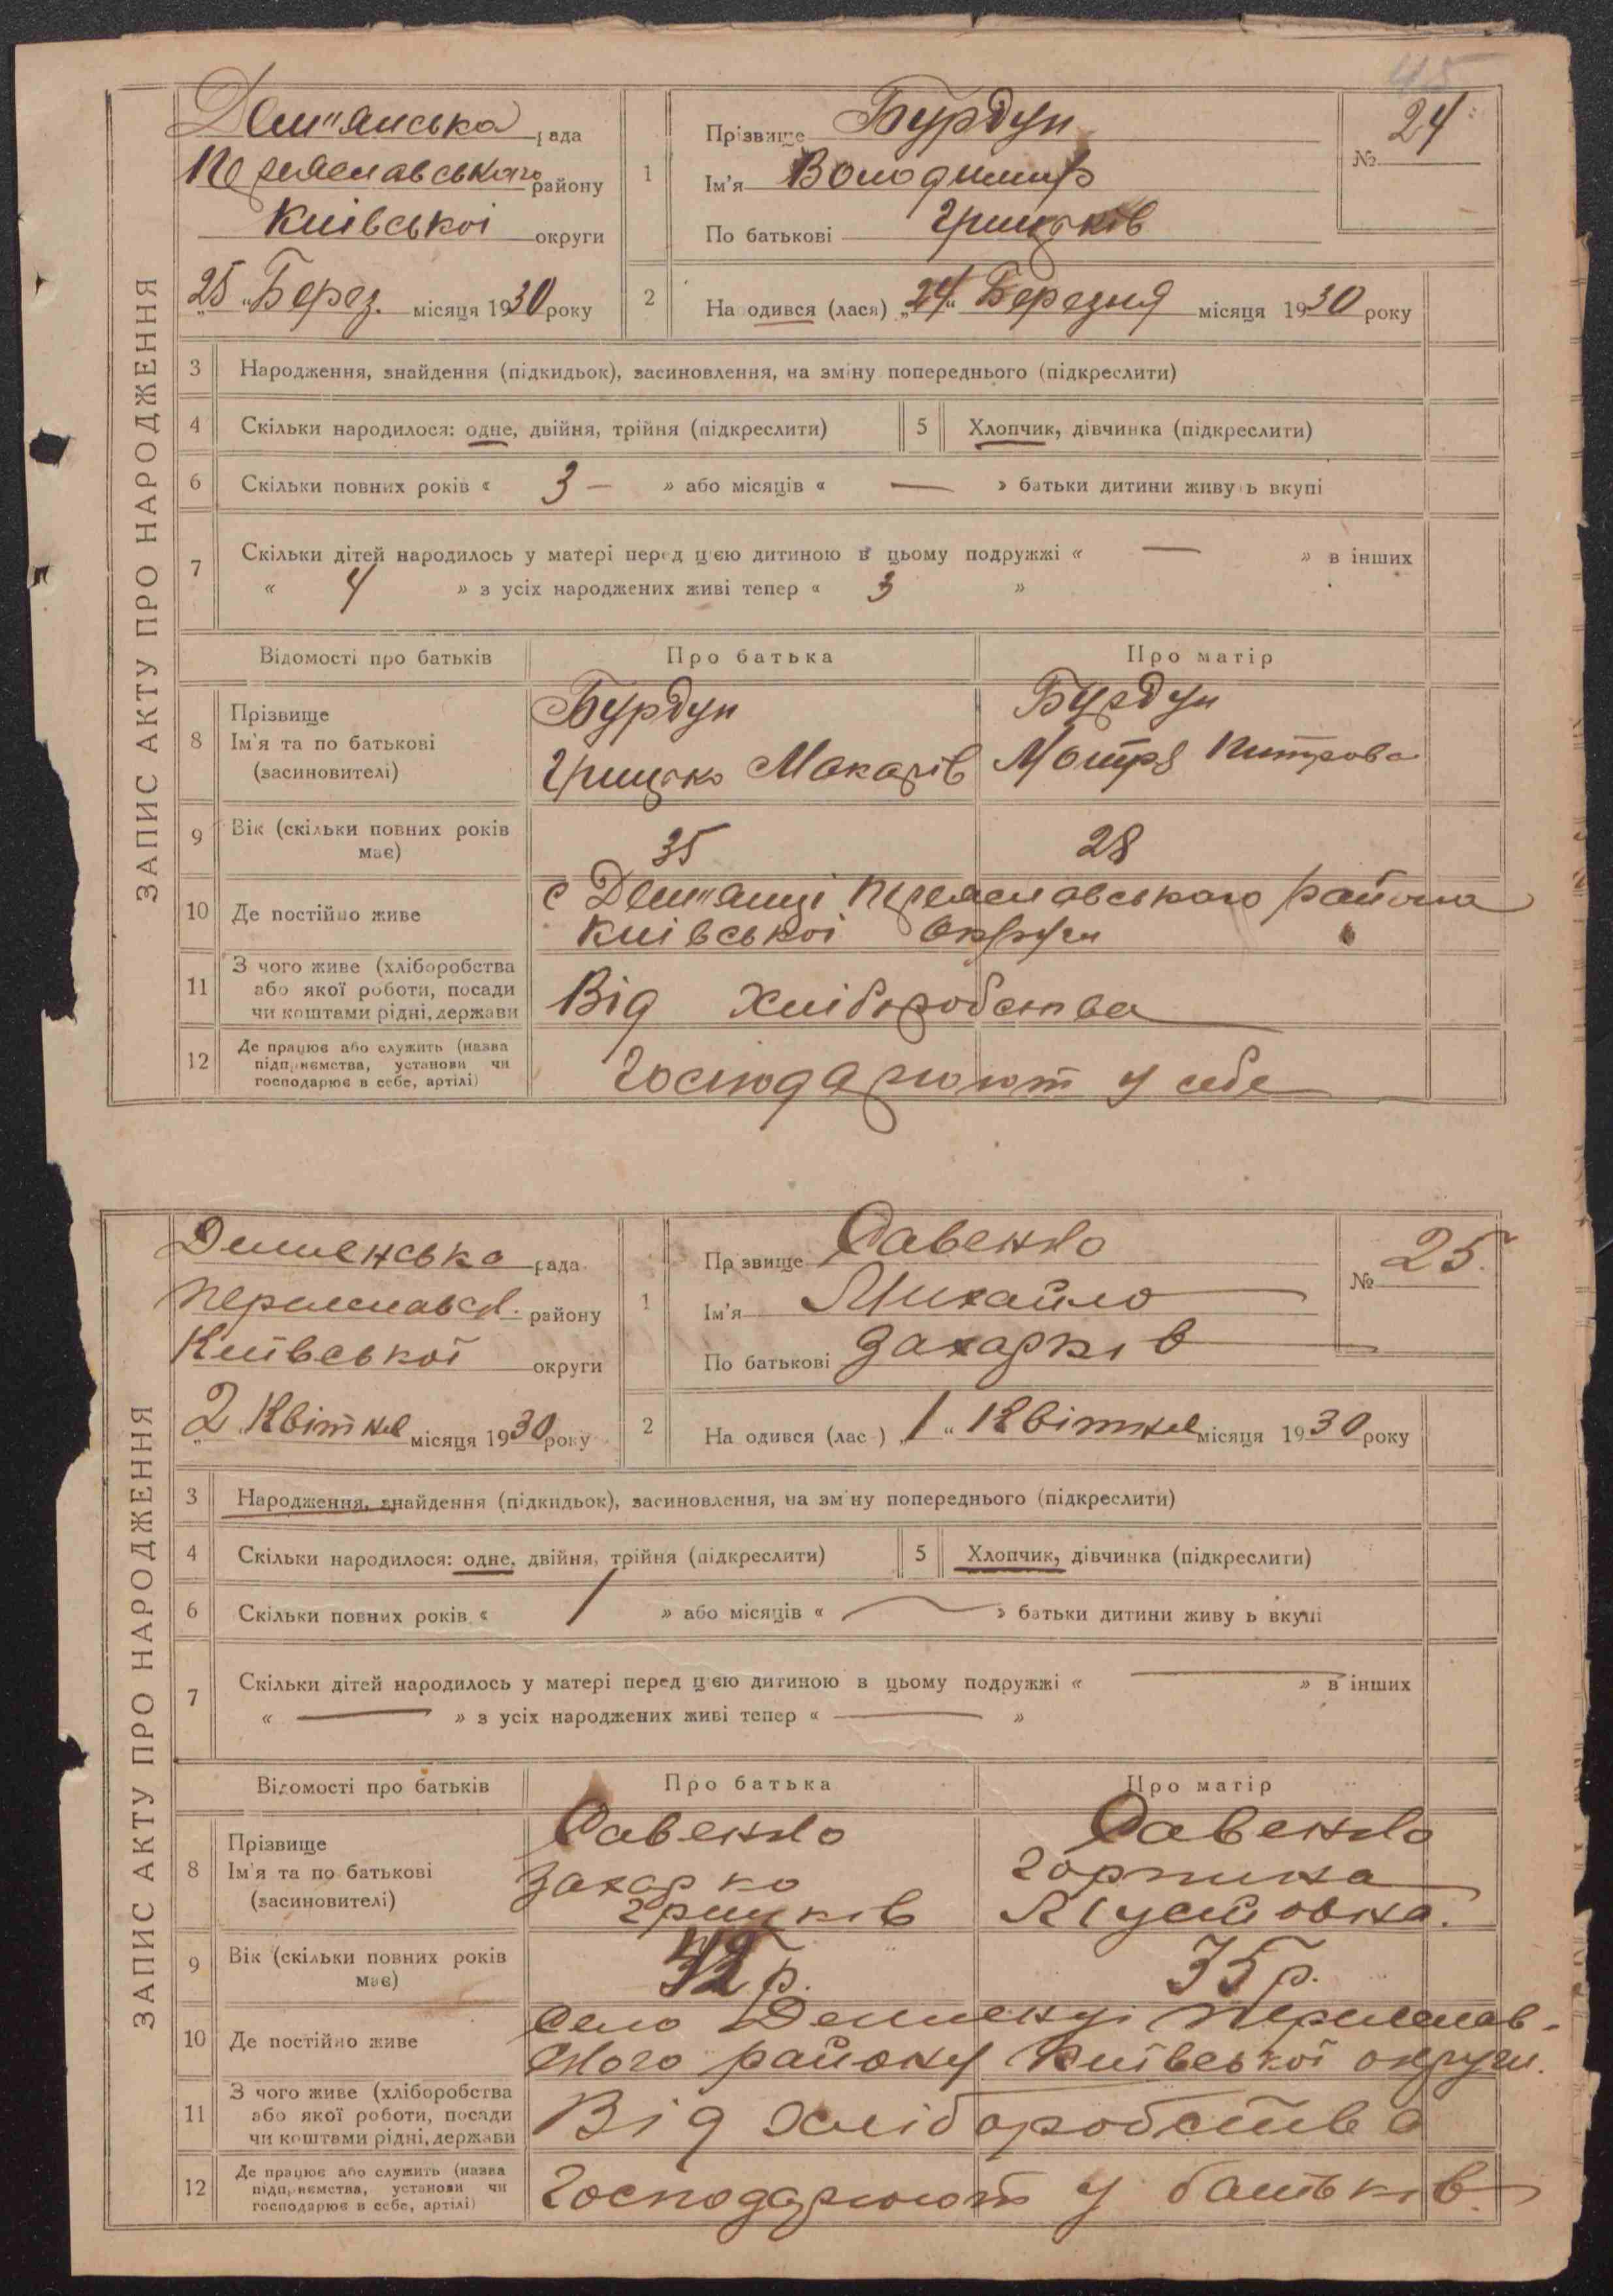 45
ЗАПИС АКТУ ПРО НАРОДЖЕННЯ
Дем"янська рада
Переяславського району
Київської округи
25 „Берез. місяця 1930 року
1 Прізвище Бурдун
Ім'я Володимир
По батькові Грицьків
№ 24
2 На одився (лася) „24" Березня місяця 1930 року
3 Народження, знайдення (підкидьок), засиновлення, на зміну попереднього (підкреслити)
4 Скільки народилося: одне, двійня, трійня (підкреслити) 5 Хлопчик, дівчинка (підкреслити)
6 Скільки повних років « 3 — » або місяців « — » батьки дитини живу ь вкупі
7 Скільки дітей народилось у матері перед цією дитиною в цьому подружжі « — » в інших
« 4 » з усіх народжених живі тепер « 3 »
Відомості про батьків Про батька Про матір
8 Прізвище Ім'я та по батькові (засиновителі)
Бурдун Бурдун
Грицько Макарів Мотря Питрова
9 Вік (скільки повних років має) 35 28
10 Де постійно живе с Дем"янці Переяславського района
Київської Округи
11 З чого живе (хліборобства або якої роботи, посади чи коштами рідні, держави Від Хліборобства
12 Де працює або служить (назва підприємства, установи чи господарює в себе, артілі) Господарюют у себе
ЗАПИС АКТУ ПРО НАРОДЖЕННЯ
рада
району
Київської округи
2 „Квітня місяця 1930 року
1 Пр звище Савенко
Ім'я Михайло
По батькові Захарків
№ 25.
2 На одився (лас ) „1" Квітня місяця 1930 року
3 Народження, знайдення (підкидьок), засиновлення, на зм ну попереднього (підкреслити)
4 Скільки народилося: одне, двійня, трійня (підкреслити) 5 Хлопчик, дівчинка (підкреслити)
6 Скільки повних років « 1 » або місяців « — » батьки дитини живу ь вкупі
7 Скільки дітей народилось у матері перед цією дитиною в цьому подружжі « — » в інших
« — » з усіх народжених живі тепер « — »
Відомості про батьків Про батька Про матір
8 Прізвище Ім'я та по батькові (засиновителі)
Савенко Савенко
Захарко Горпина
Грицьків
9 Вік (скільки повних років має) р. 35 р.
10 Де постійно живе Село Демленці Переяслав-
ского району Київської округи.
11 З чого живе (хліборобства або якої роботи, посади чи коштами рідні, держави Від хліборобства
12 Де працює або служить (назва підприємства, установи чи господарює в себе, артілі) Господарюют у батьків.